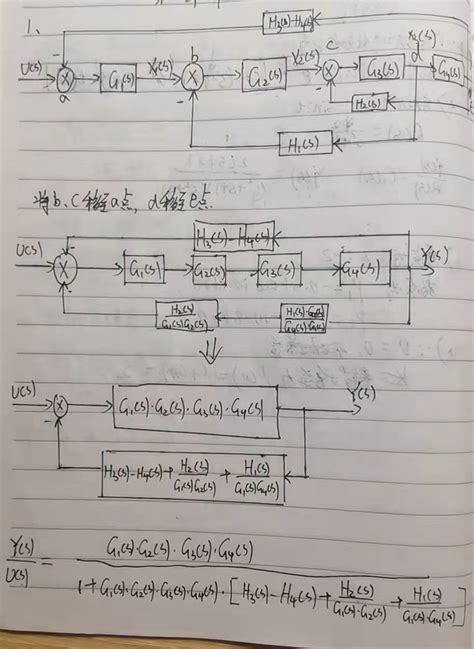 1、
H3(s)-H4(s)
U(s) X G1(s) X1(s) b X G2(s) X2(s) c X G3(s) X3(s) d G4(s)
a
H2(s)
H1(s)
将b、c移至a点，d移至e点.
H3(s)-H4(s)
U(s) X G1(s) G2(s) G3(s) G4(s) Y(s)
H2(s)/G1(s)G2(s)
⇓
U(s) X G1(s)·G2(s)·G3(s)·G4(s) Y(s)
H3(s)-H4(s)+H2(s)/G1(s)G2(s)+H1(s)/G1(s)G4(s)
Y(s)/U(s) = G1(s)·G2(s)·G3(s)·G4(s) / 1+G1(s)·G2(s)·G3(s)·G4(s)·[H3(s)-H4(s)+H2(s)/G1(s)·G2(s)+H1(s)/G1(s)·G4(s)]